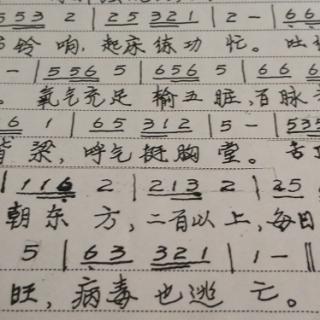 553 2 | 25 321 | 2 - | 66
铃响，起床练功忙。吐
- | 556 5 | 656 5 | 66 6
氧气充足输五脏，百脉
6 1 | 65 312 | 5 - | 535
梁，呼气挺胸堂。舌
| 116 2 | 213 2 | 25
朝东方，二百以上，每日
5 | 63 321 | 1 - ‖
旺，病毒也逃亡。